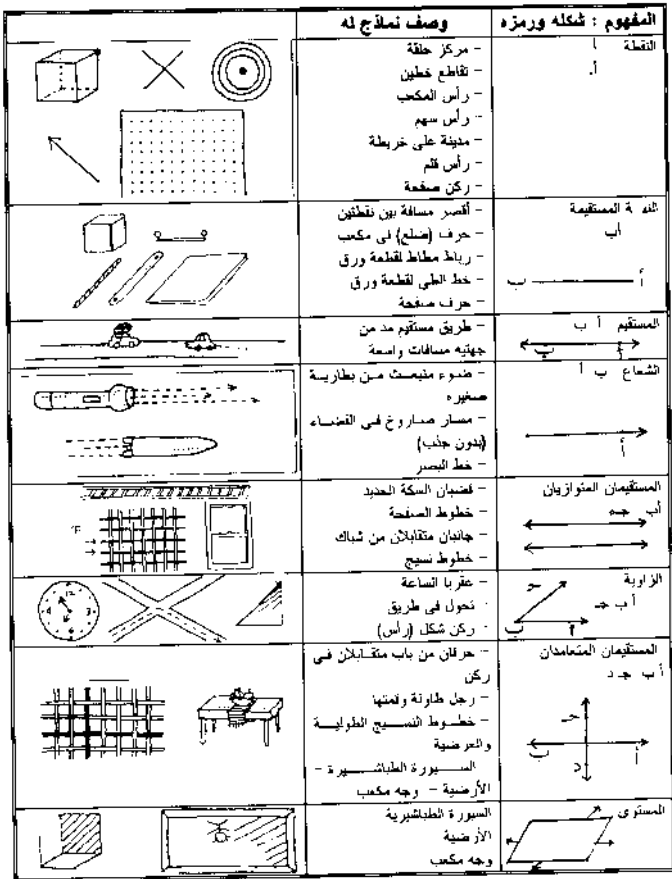 المفهوم : شكله ورمزه
وصف نماذج له
النقطة أ
أ.
- مركز حلقة
- تقاطع خطين
- رأس المكعب
- رأس سهم
- مدينة على خريطة
- رأس قلم
- ركن صفحة
المستقيمة
أب
أ ب
- أقصر مسافة بين نقطتين
- حرف (ضلع) فى مكعب
- رباط مطاط لقطعة ورق
- خط الطى لقطعة ورق
- حرف صفحة
المستقيم أ ب
أ ب
- طريق مستقيم مد من
جهتيه مسافات واسعة
الشعاع ب أ
أ
- ضوء منبعث من بطارية
صغيره
- مسار صاروخ فى الفضاء
(بدون جذب)
- خط البصر
المستقيمان المتوازيان
أب جـ د
- قضبان السكة الحديد
- خطوط الصفحة
- جانبان متقابلان من شباك
- خطوط نسيج
الزاوية
أ ب جـ
جـ
ب أ
- عقربا الساعة
- تحول فى طريق
- ركن شكل (رأس)
12
3
6
المستقيمان المتعامدان
أ ب جـ د
جـ
أ ب
د
- حرفان من باب متقابلان فى
ركن
- رجل طاولة وقمتها
- خطوط النسيج الطولية
والعرضية
السبورة الطباشيرة -
الأرضية - وجه مكعب
المستوى
السبورة الطباشيرية
الأرضية
وجه مكعب